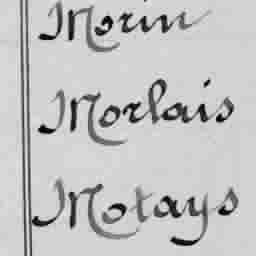 Morin
Morlais
Motays